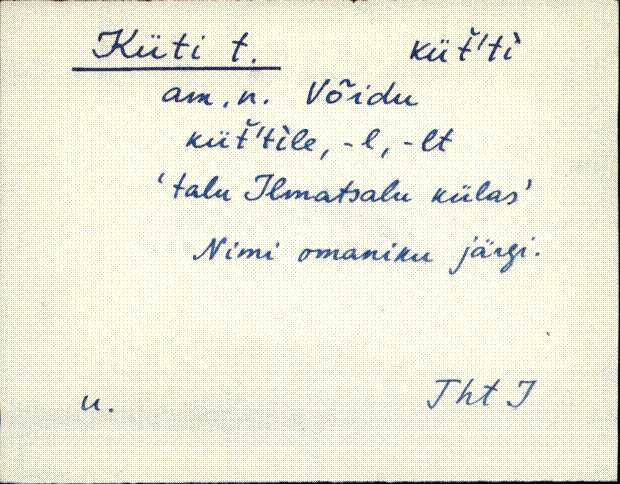 Küti t. küt̆'tì
am. n. Võidu
küt̆'tìle, -l, -lt
'talu Ilmatsalu külas'
Nimi omaniku järgi.
u. Tht I